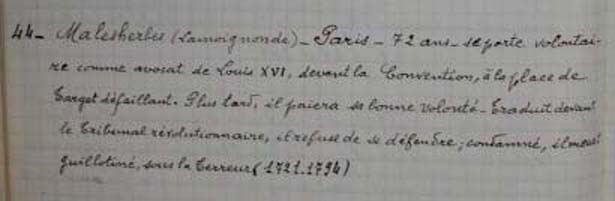 44- Malesherbes (Lamoignon de) - Paris - 72 ans - se porte volontai-
re comme avocat de Louis XVI, devant la Convention, à la place de
Target défaillant. Plus tard, il paiera sa bonne volonté - Traduit devant
le Tribunal révolutionnaire, il refuse de se défendre ; condamné, il meurt
guillotiné, sous la Terreur (1721.1794)